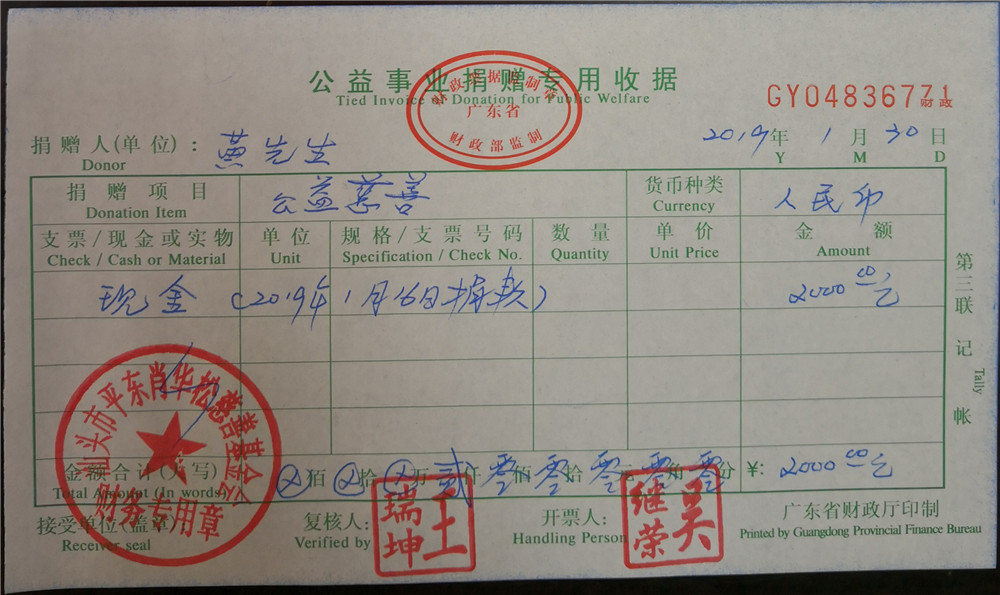 公益事业捐赠专用收据
Tied Invoice of Donation for Public Welfare
财政票据监制章
广东省
财政部监制
GY04836771 财政
捐赠人(单位): 黄先生 2019年 1月 30日
Donor Y M D
捐赠项目 公益慈善 货币种类 人民币
Donation Item Currency
支票/现金或实物 单位 规格/支票号码 数量 单价 金额
Check / Cash or Material Unit Specification / Check No. Quantity Unit Price Amount
现金 (2019年1月16日捐款) 2000.00元
第三联 记帐
Tally
汕头市平东肖华松慈善基金会
财务专用章
金额合计(大写) ⊗佰⊗拾⊗万贰仟零佰零拾零元零角零分 ¥: 2000.00元
Total Amount (In words)
接受单位(盖章) 复核人: 王瑞坤 开票人: 吴继荣 广东省财政厅印制
Receiver seal Verified by Handling Person Printed by Guangdong Provincial Finance Bureau